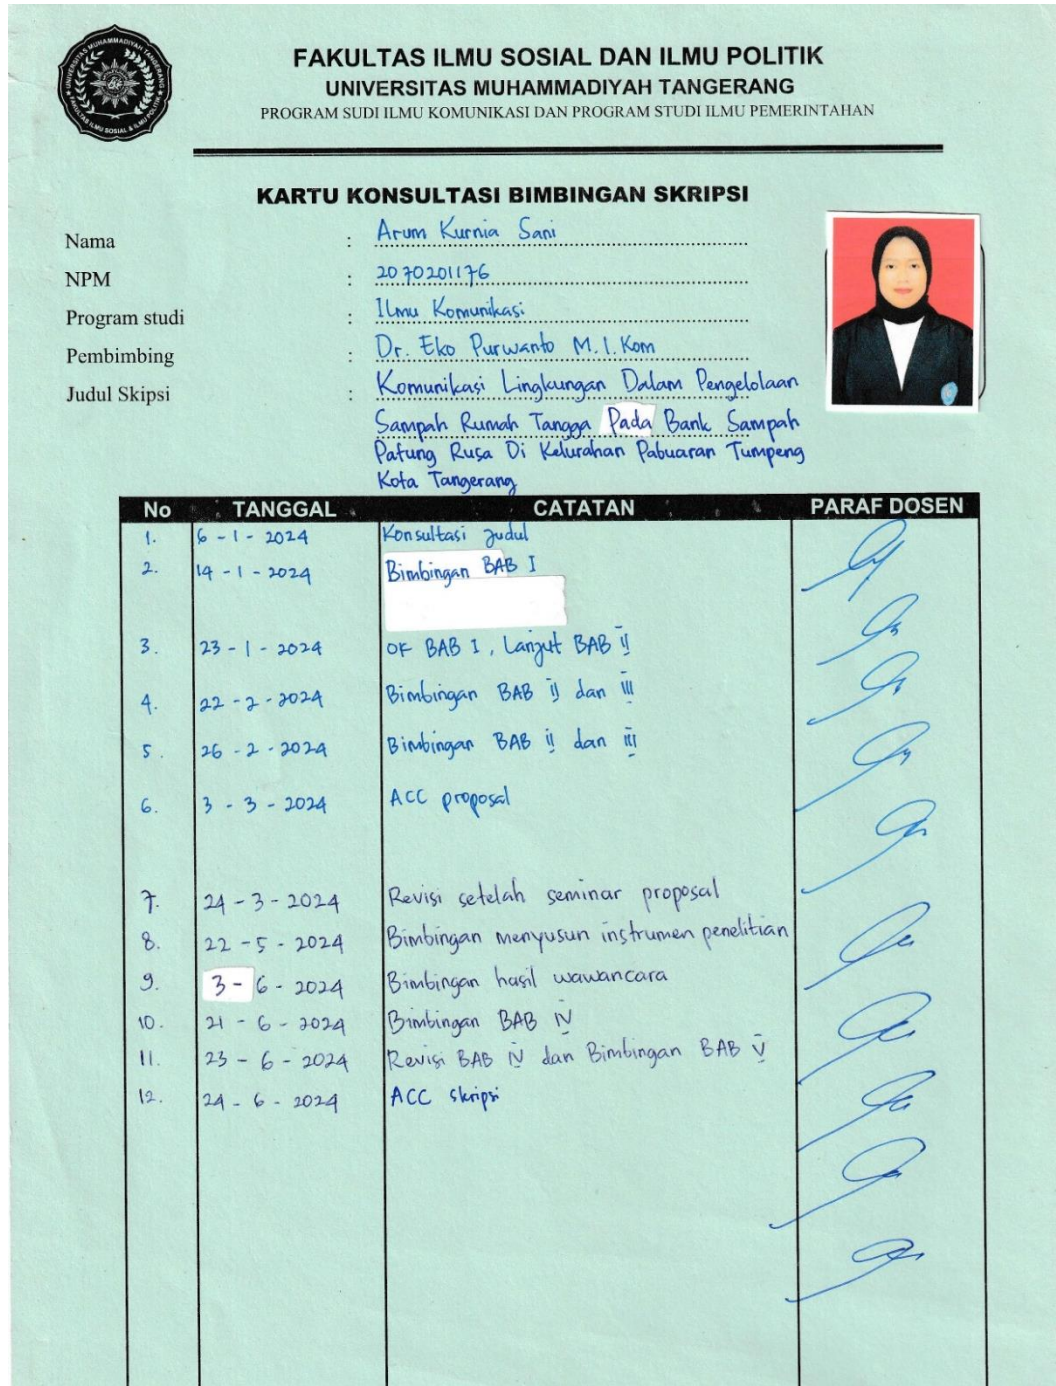 UNIVERSITAS MUHAMMADIYAH TANGERANG
FAKULTAS ILMU SOSIAL & ILMU POLITIK
FAKULTAS ILMU SOSIAL DAN ILMU POLITIK
UNIVERSITAS MUHAMMADIYAH TANGERANG
PROGRAM SUDI ILMU KOMUNIKASI DAN PROGRAM STUDI ILMU PEMERINTAHAN
KARTU KONSULTASI BIMBINGAN SKRIPSI
Nama : Arum Kurnia Sani
NPM : 2070201176
Program studi : Ilmu Komunikasi
Pembimbing : Dr. Eko Purwanto M.I.Kom
Judul Skipsi : Komunikasi Lingkungan Dalam Pengelolaan
Sampah Rumah Tangga Pada Bank Sampah
Patung Rusa Di Kelurahan Pabuaran Tumpeng
Kota Tangerang
No TANGGAL CATATAN PARAF DOSEN
1. 6 - 1 - 2024 Konsultasi Judul
2. 14 - 1 - 2024 Bimbingan BAB I
3. 23 - 1 - 2024 OK BAB I, Lanjut BAB II
4. 22 - 2 - 2024 Bimbingan BAB II dan III
5. 26 - 2 - 2024 Bimbingan BAB II dan III
6. 3 - 3 - 2024 ACC proposal
7. 24 - 3 - 2024 Revisi setelah seminar proposal
8. 22 - 5 - 2024 Bimbingan menyusun instrumen penelitian
9. 3 - 6 - 2024 Bimbingan hasil wawancara
10. 21 - 6 - 2024 Bimbingan BAB IV
11. 23 - 6 - 2024 Revisi BAB IV dan Bimbingan BAB V
12. 24 - 6 - 2024 ACC skripsi